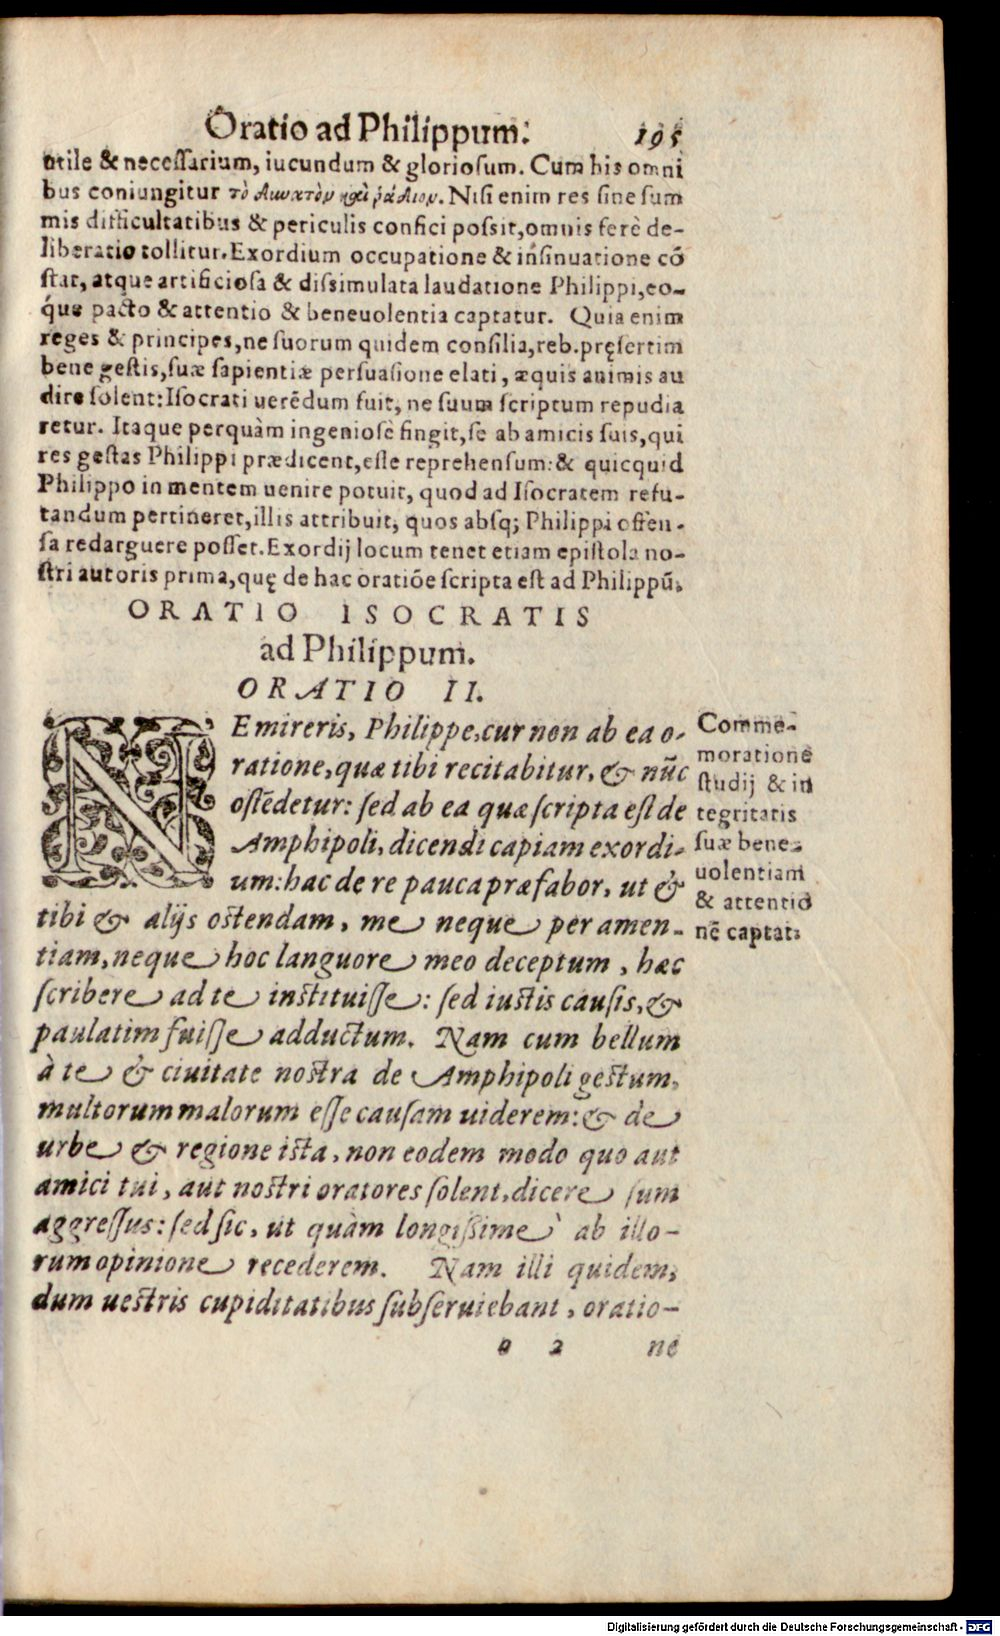 Oratio ad Philippum. 195
utile & necessarium, iucundum & gloriosum. Cum his omni
bus coniungitur τὸ δυνατὸν καὶ ῥᾴδιον. Nisi enim res sine sum
mis difficultatibus & periculis confici possit, omnis ferè de-
liberatio tollitur. Exordium occupatione & insinuatione cō
stat, atque artificiosa & dissimulata laudatione Philippi, eo-
q́ue pacto & attentio & beneuolentia captatur. Quia enim
reges & principes, ne suorum quidem consilia, reb. pręsertim
bene gestis, suæ sapientiæ persuasione elati, æquis animis au
dire solent: Isocrati uerēdum fuit, ne suum scriptum repudia
retur. Itaque perquàm ingeniosè fingit, se ab amicis suis, qui
res gestas Philippi prædicent, esse reprehensum: & quicquid
Philippo in mentem uenire potuit, quod ad Isocratem refu-
tandum pertineret, illis attribuit, quos absq; Philippi offen-
sa redarguere posset. Exordij locum tenet etiam epistola no-
stri autoris prima, quę de hac oratiōe scripta est ad Philippū.
ORATIO ISOCRATIS
ad Philippum.
ORATIO II.
NE mireris, Philippe, cur non ab ea o-
ratione, quæ tibi recitabitur, & nūc
ostēdetur: sed ab ea quæ scripta est de
Amphipoli, dicendi capiam exordi-
um: hac de re pauca præfabor, ut &
tibi & alijs ostendam, me neque per amen-
tiam, neque hoc languore meo deceptum, hæc
scribere ad te instituisse: sed iustis causis, &
paulatim fuisse adductum. Nam cum bellum
à te & ciuitate nostra de Amphipoli gestum,
multorum malorum esse causam uiderem: & de
urbe & regione ista, non eodem modo quo aut
amici tui, aut nostri oratores solent, dicere sum
aggressus: sed sic, ut quàm longissimè ab illo-
rum opinione recederem. Nam illi quidem,
dum uestris cupiditatibus subseruiebant, oratio-
o 2 ne
Comme-
moratione
studij & in
tegritatis
suæ bene-
uolentiam
& attentio
nē captat.
Digitalisierung gefördert durch die Deutsche Forschungsgemeinschaft - DFG